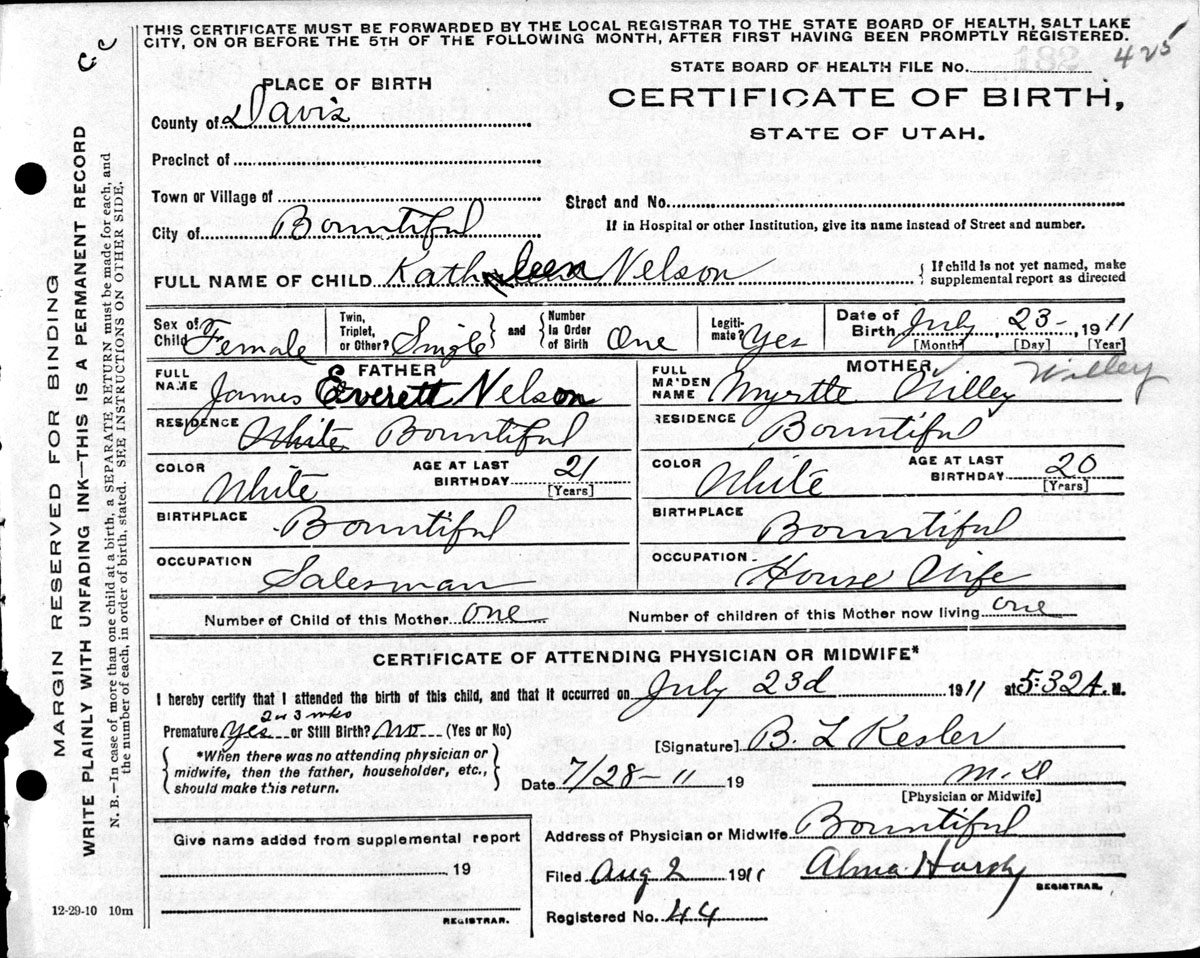 THIS CERTIFICATE MUST BE FORWARDED BY THE LOCAL REGISTRAR TO THE STATE BOARD OF HEALTH, SALT LAKE
CITY, ON OR BEFORE THE 5TH OF THE FOLLOWING MONTH, AFTER FIRST HAVING BEEN PROMPTLY REGISTERED.
425
STATE BOARD OF HEALTH FILE No.
PLACE OF BIRTH
CERTIFICATE OF BIRTH,
STATE OF UTAH.
County of Davis
Precinct of
Town or Village of
Street and No.
City of Bountiful
If in Hospital or other Institution, give its name instead of Street and number.
FULL NAME OF CHILD Kathleen Nelson
If child is not yet named, make
supplemental report as directed
Sex of Child Female
Twin, Triplet, or Other? Single
and Number In Order of Birth One
Legitimate? Yes
Date of Birth July 23- 1911
[Month] [Day] [Year]
FATHER
FULL NAME James Everett Nelson
MOTHER
FULL MAIDEN NAME Myrtle Willey Willey
RESIDENCE White Bountiful
RESIDENCE Bountiful
COLOR White AGE AT LAST BIRTHDAY 21 [Years]
COLOR White AGE AT LAST BIRTHDAY 20 [Years]
BIRTHPLACE Bountiful
BIRTHPLACE Bountiful
OCCUPATION Salesman
OCCUPATION House Wife
Number of Child of this Mother One
Number of children of this Mother now living One
CERTIFICATE OF ATTENDING PHYSICIAN OR MIDWIFE*
I hereby certify that I attended the birth of this child, and that it occurred on July 23d 1911 at 5:32 A. M.
2 or 3 wks
Premature Yes or Still Birth? No (Yes or No)
*When there was no attending physician or
midwife, then the father, householder, etc.,
should make this return.
[Signature] B. L Kesler
Date 7/28-11 19
M.D
[Physician or Midwife]
Give name added from supplemental report
, 19
REGISTRAR.
Address of Physician or Midwife Bountiful
Filed Aug 2 1911 Alma Hardy
REGISTRAR.
Registered No. 44
12-29-10 10m
MARGIN RESERVED FOR BINDING
WRITE PLAINLY WITH UNFADING INK—THIS IS A PERMANENT RECORD
N. B.—In case of more than one child at a birth, a SEPARATE RETURN must be made for each, and
the number of each, in order of birth, stated. SEE INSTRUCTIONS ON OTHER SIDE.